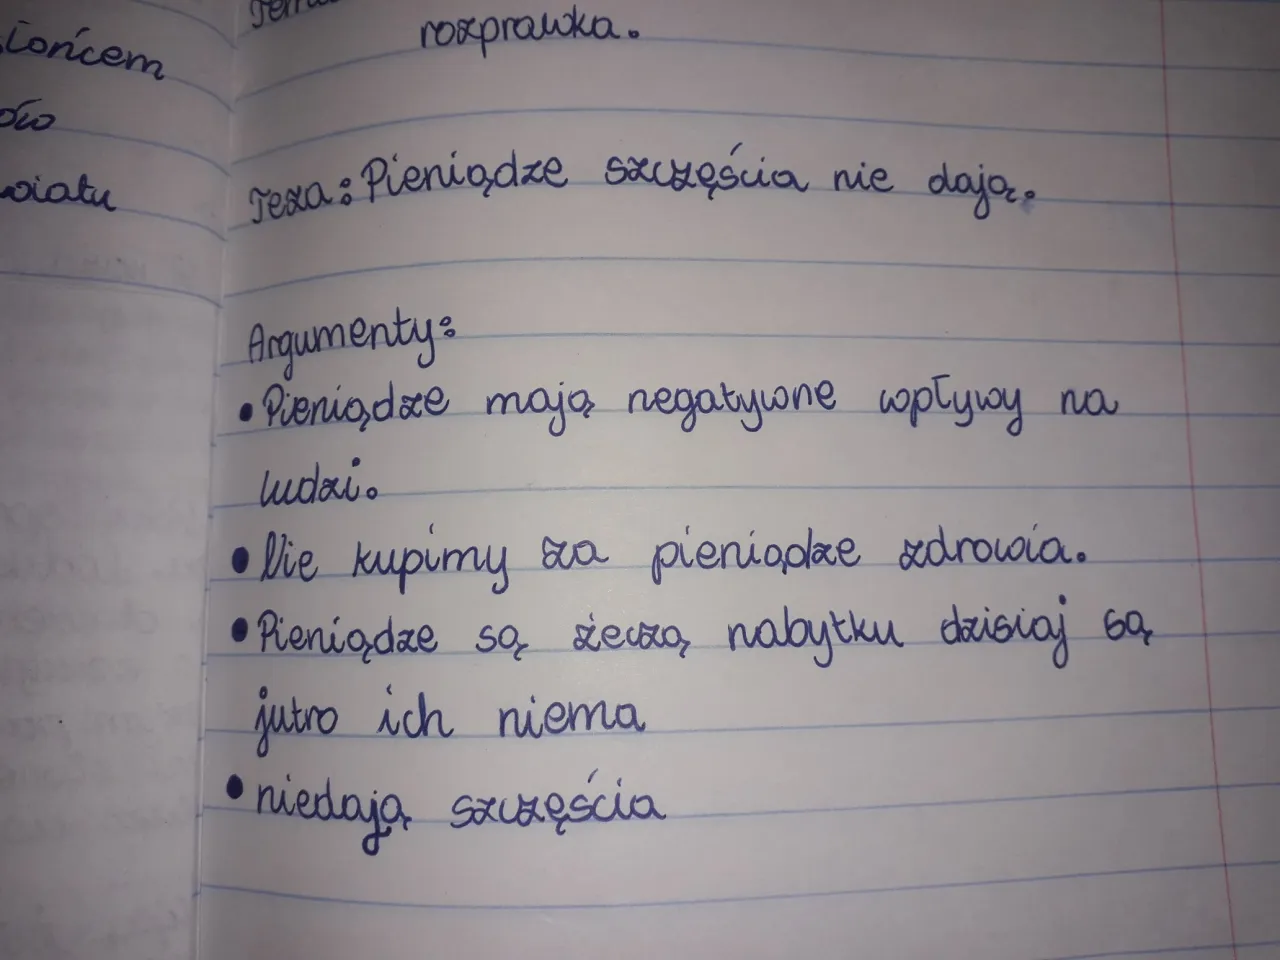 słońcem
wiatu
rozprawka.
Teza: Pieniądze szczęścia nie dają.
Argumenty:
• Pieniądze mają negatywne wpływy na
ludzi.
• Nie kupimy za pieniądze zdrowia.
• Pieniądze są żeczą nabytku dzisiaj są
jutro ich niema
• niedają szczęścia